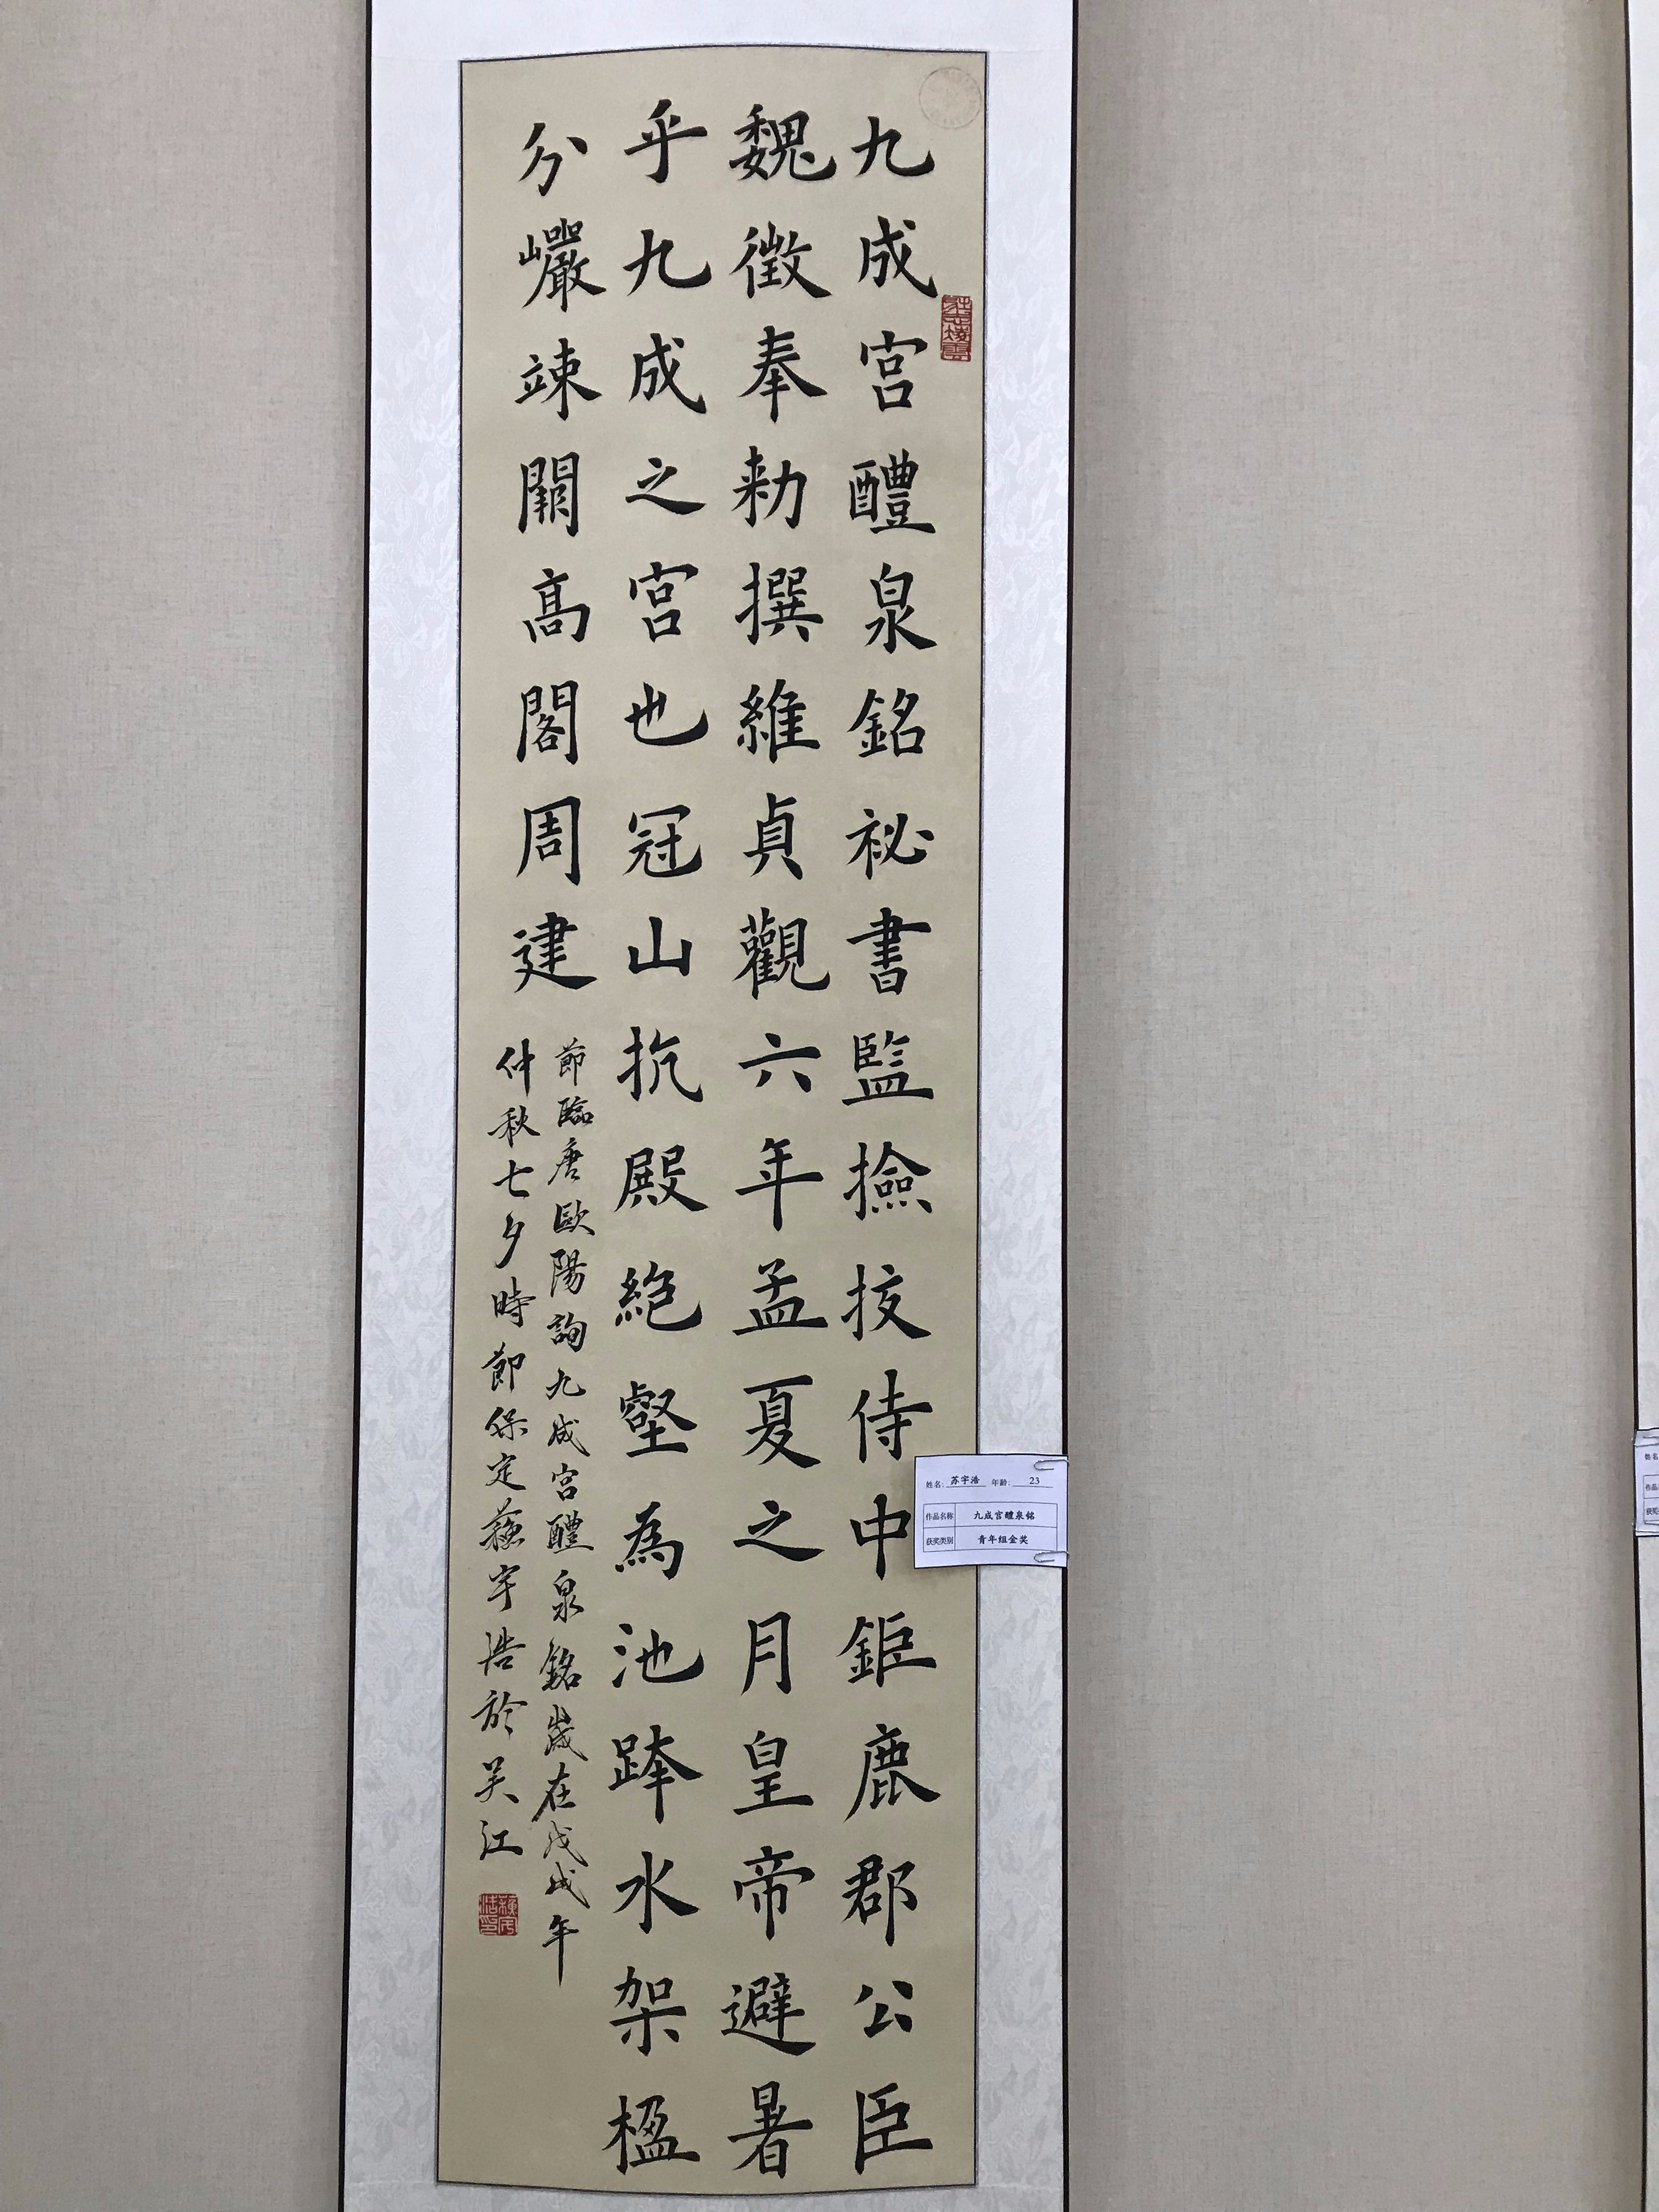 九成宮醴泉銘祕書監撿挍侍中鉅鹿郡公臣
魏徵奉勑撰維貞觀六年孟夏之月皇帝避暑
乎九成之宮也冠山抗殿絶壑為池跨水架楹
分巖竦闕高閣周建
節臨唐歐陽詢九成宮醴泉銘歲在戊戌年
仲秋七夕時節保定蘇宇浩於吴江
姓名: 苏宇浩 年龄: 23
作品名称 九成宫醴泉铭
获奖类别 青年组金奖